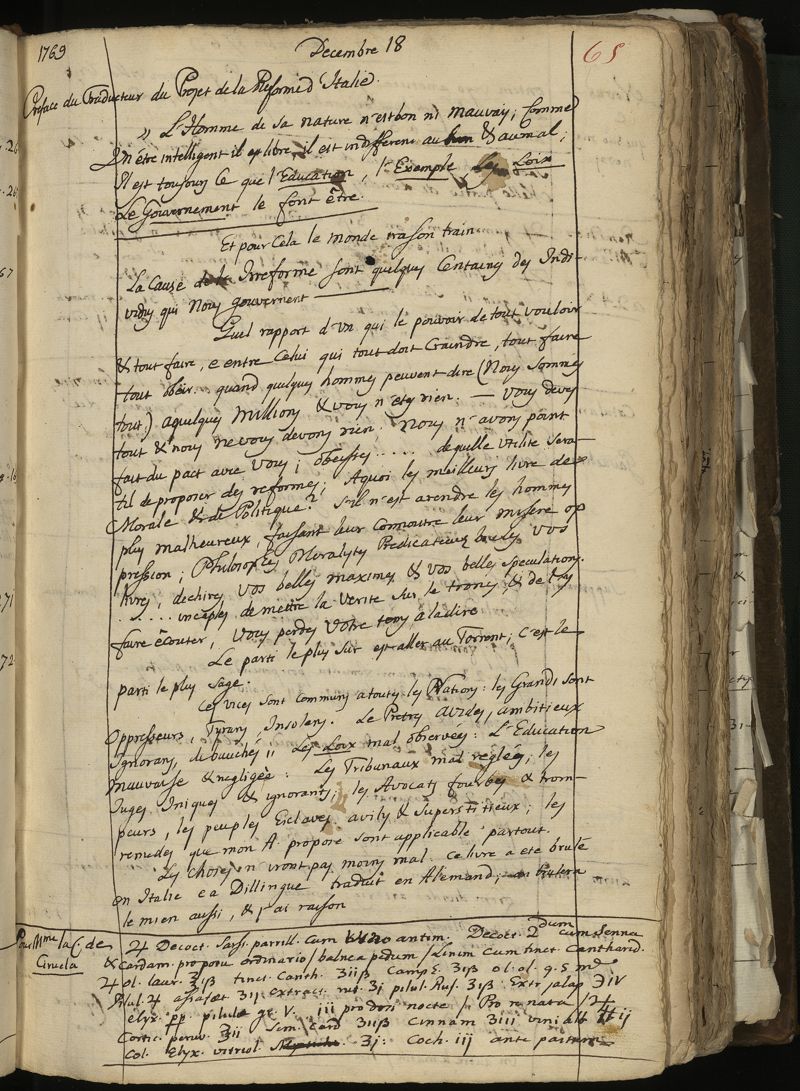 1769
Decembre 18
65
Preface du Traducteur du Projet de la Reforme d'Italie.
„ L'Homme de sa nature n'est bon ni mauvay; Comme
Un être intelligent il est libre, il est indifferent au bien & au mal;
Il est toujours Ce que l'Education, l'Exemple Les Loix
Le Gouvernement le font être.
Et pour Cela le monde va son train
La Cause de la Irreforme sont quelques Centaines des Indi-
vidus qui Nous gouvernent
Quel rapport d'un qui le pouvoir de tout vouloir
& tout faire, e entre Celui qui tout doit Craindre, tout faire
tout obeir. quand quelques hommes peuvent dire (Nous sommes
tout) a quelques Millions & vous n'etes rien. — Vous devez
tout & nous ne vous devons rien. Nous n'avons point
fait du pact avec vous; obeissez ..... de quelle utilité sera-
til de proposer des reformes; Aquoi les meilleurs livre de
Morale & de Politique? s'il n'est a rendre les hommes
plus malheureux, faisant leur connoitre leur misere op
pression; Philosophes Moralistes Predicateurs brulez vos
livres, dechirez vos belles maximes & vos belles speculations.
...... de mettre la Verité sur le trone, & de
faire écouter, vous perdez Votre tems à la dire
Le parti le plus sur est aller au Torrent; C'est le
parti le plus sage.
Ces vices sont communs a toutes les Nations: les Grands sont
Oppresseurs, Tyrans, Insolens. Le Pretres avides, ambitieux
Ignorans, debauchés, Les Loix mal observées: L'Education
Mauvaise & negligée: Les Tribunaux mal reglés, les
Juges Iniques & ignorants, les Avocats fourbes & trom-
peurs, les peuples Esclaves avilis & superstitieux; les
remedes que mon A. propose sont applicable partout.
Les choses n'iront pas moins mal. Ce livre a eté brulé
en Italie e a Dillingue traduit en Alemand; brulera
le mien aussi, & j'ai raison
Pour Mme la C. de
Ciruela
♃ Decoct. Sars. parrill. cum antim. Decoct. 2dum cum senna
& Cardam. proporu ordinario / balnea pedum / Linim cum tinct Cantharid.
♃ ol. laur. ʒiß tinct. Canth. ʒiiß Camp ʒiß ol. ol. q. s. md
Pilul. ♃ assafoet ʒij extract. rut. ʒi pilul. Ruf. ʒiß Extr jalap ℈iv
elyx. pp. pilule gr. V. iii pro dosi nocte / Pro re nata / ♃
Cortic. peruv. ʒii Sem. Card ʒiiß cinnam ʒiii vini alb ℔ij
Col. Elyx. vitriol. ʒi: Coch. iij ante pastum